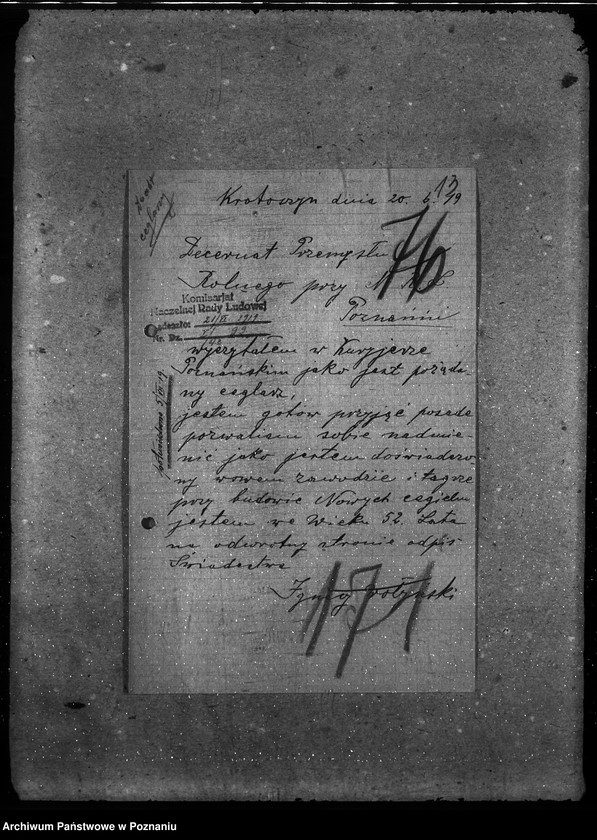 Krotoszyn dnia 20. 6. 19
13
76
Decernat Przemysłu
Rolnego przy N R L
Poznańiu
Komisarjat
Naczelnej Rady Ludowej
Nadeszło: 21/VI 1919
Nr. Dz.
wyczytałem w Kuryjerze
Poznańskim jako jest pożąda-
ny ceglarz,
jestem gotów przyjąć posade
pozwalism sobie nadmie-
nić jako jestem doświadczo
ny wowem zawodzie i tagże
przy budowie Nowych cegielni
jestem we Wieku 52. Lata
na odwrotny stronie odpis
Świadectwa
171
Archiwum Państwowe w Poznaniu